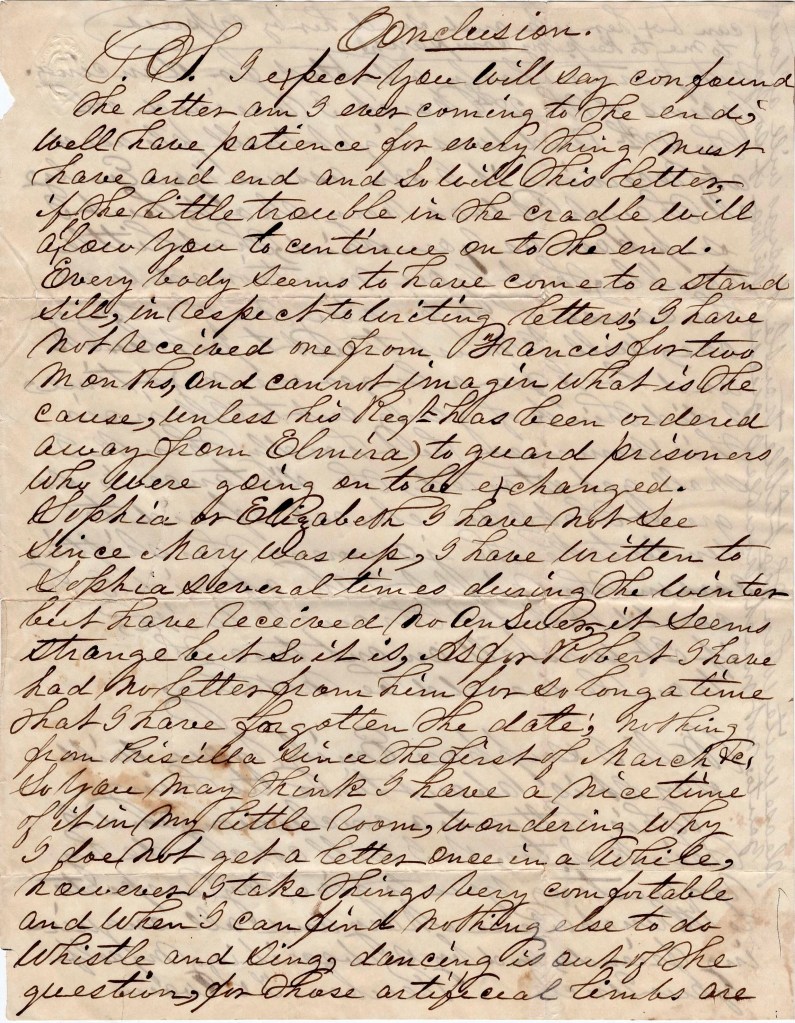 Conclusion.
P.S. I expect you will say confound
the letter am I ever coming to the end;
well have patience for every thing must
have and end and so will this letter,
if the little trouble in the cradle will
allow you to continue on to the end.
Every body seems to have come to a stand
sill, in respect to writing letters; I have
not received one from Francis for two
months, and cannot imagin what is the
cause, unless his Regt has been ordered
away from Elmira) to guard prisoners
who were going on to be exchanged.
Sophia or Elizabeth I have not see
since Mary was up, I have written to
Sophia several times during the winter
but have received no answer, it seems
strange but so it is, As for Robert I have
had no letter from him for so long a time
that I have forgotten the date; nothing
from Priscilla since the first of March &c,
so you may think I have a nice time
of it in my little room, wondering why
I doe not get a letter once in a while,
however I take things very comfortable
and when I can find nothing else to do
whistle and sing, dancing is out of the
question, for those artificial limbs are